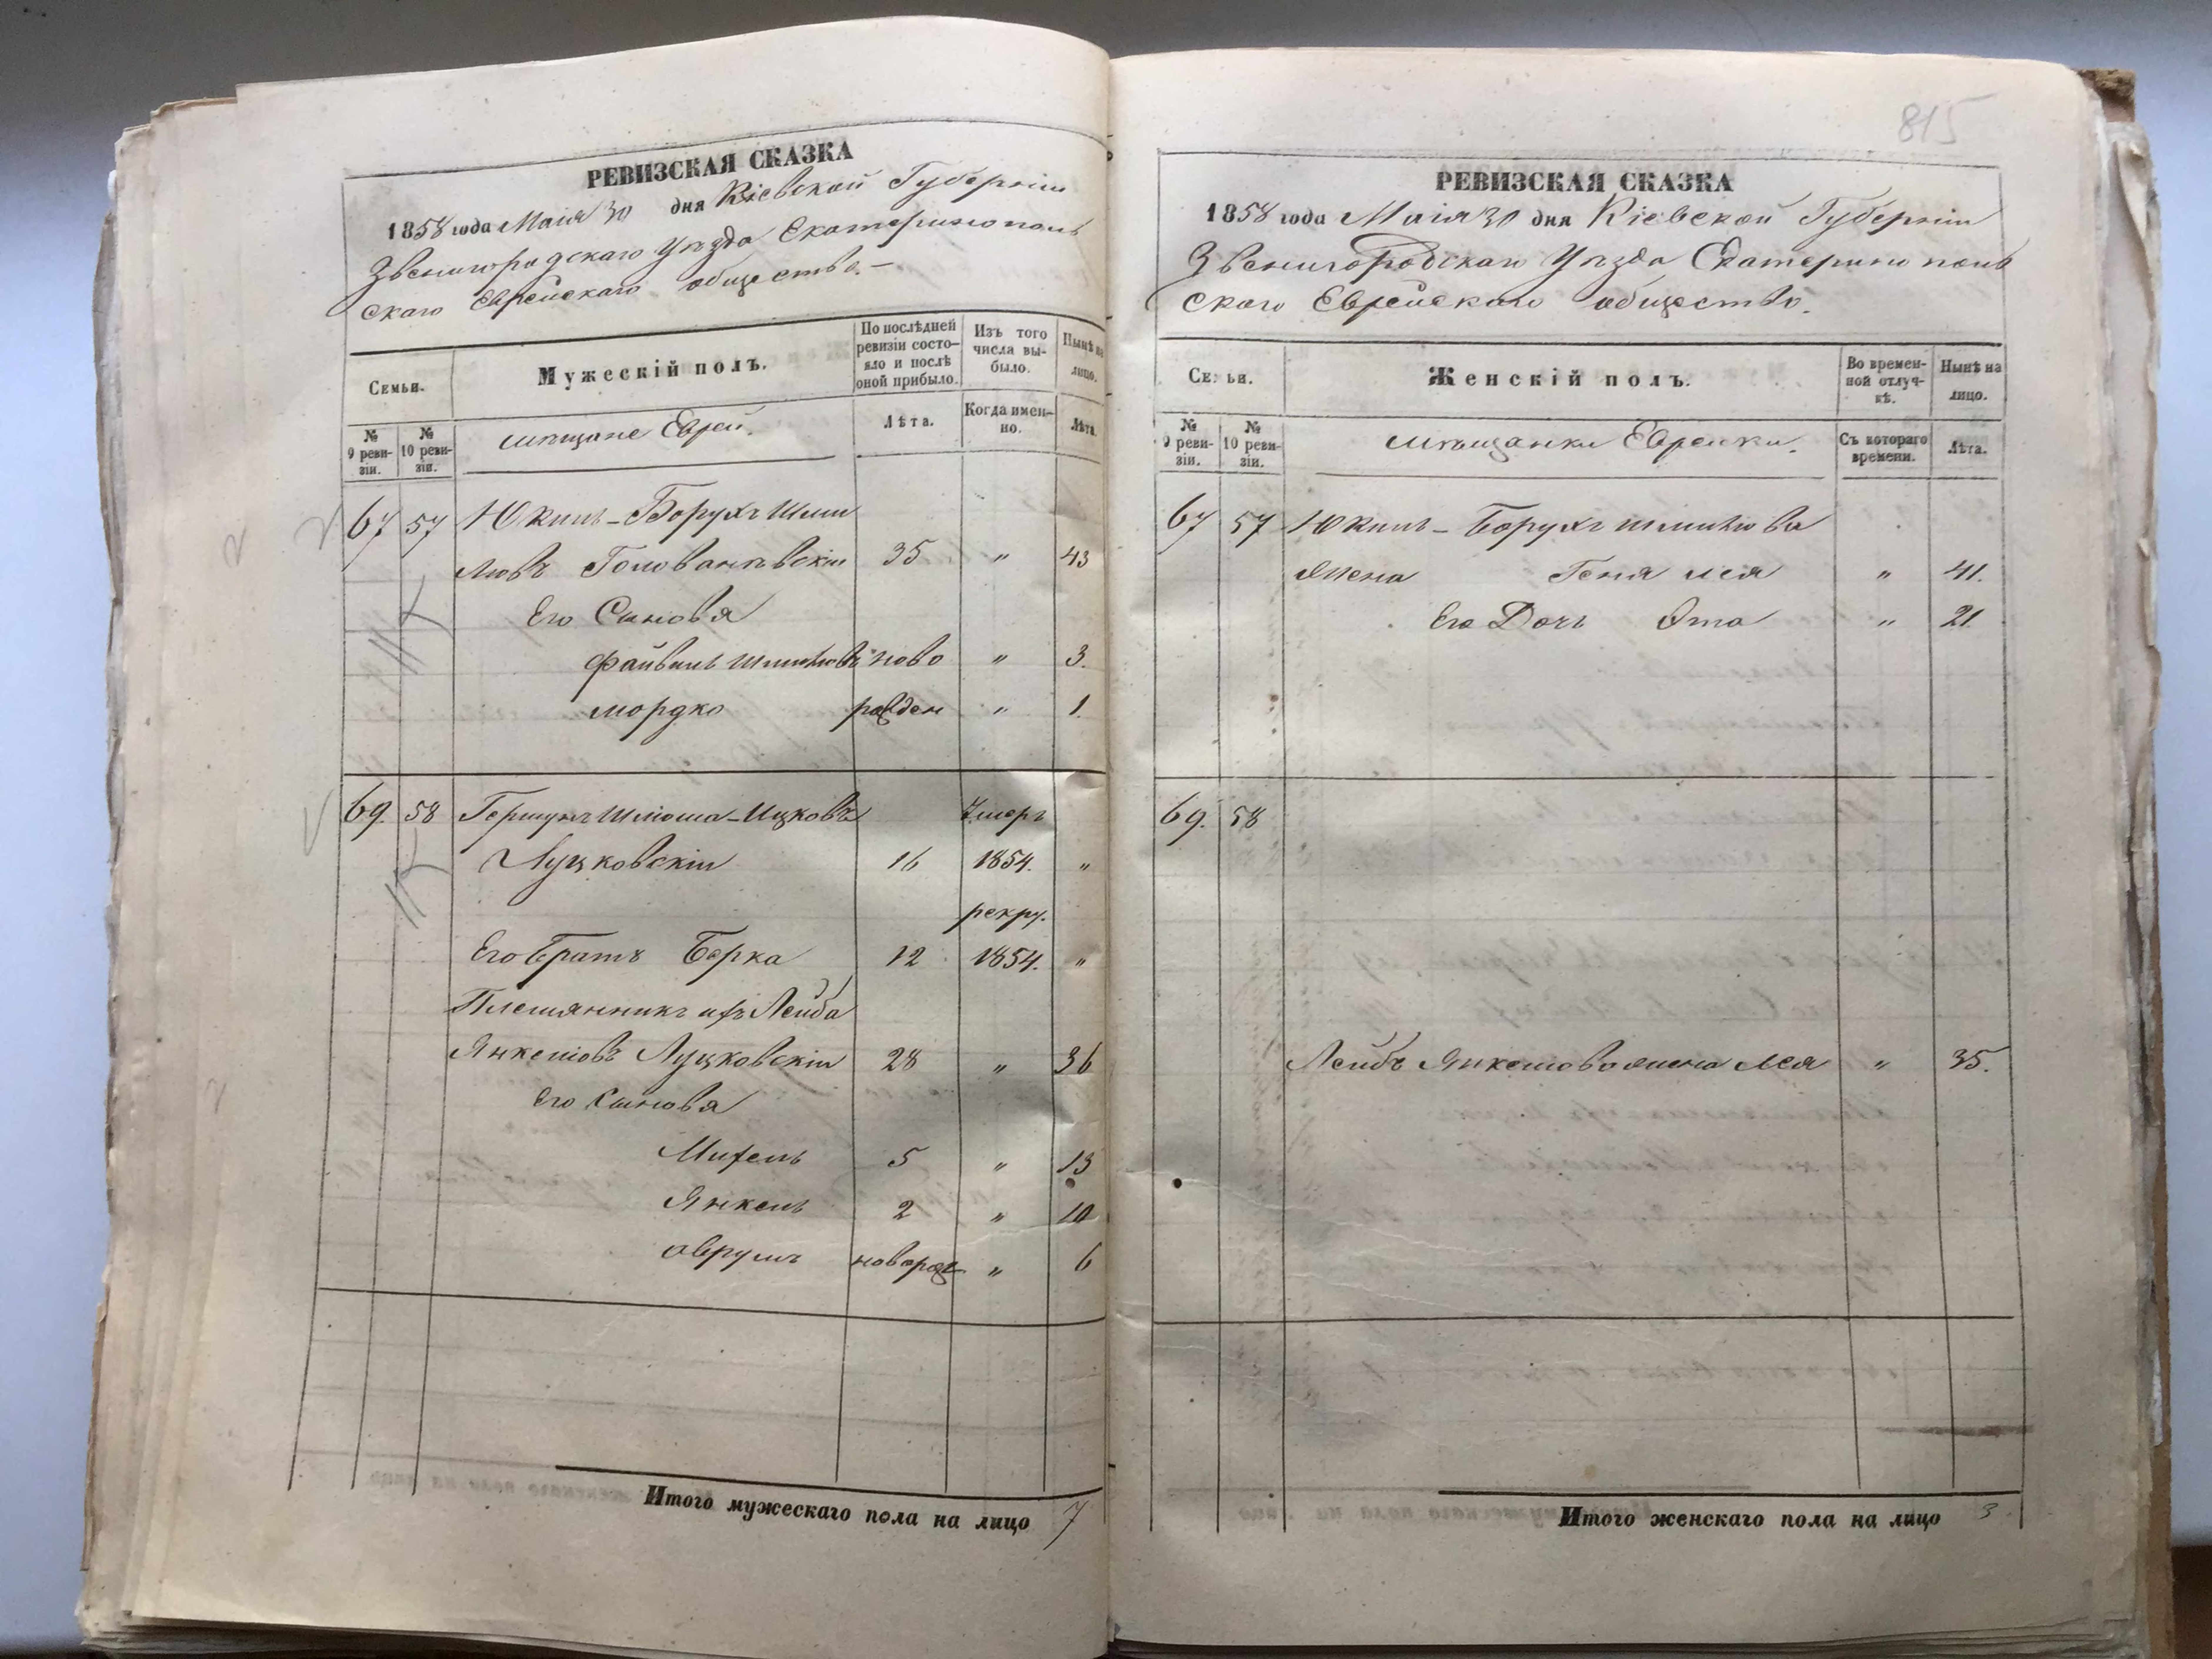 РЕВИЗСКАЯ СКАЗКА
1858 года Маія 30 дня Кіевской Губерніи
Звенигородскаго Уѣзда Екатеринополь
скаго Еврейскаго общества.-
Семьи.
Мужескій полъ.
По послѣдней ревизіи состо-
яло и послѣ оной прибыло.
Изъ того числа вы-
было.
Нынѣ на лицо.
№ 9 реви-
зіи.
№ 10 реви-
зіи.
мѣщане Евреи.
Лѣта.
Когда имен-
но.
Лѣта.
67 57 Юкиль-Борухъ Шми
люв Голованѣвскій 35 " 43
Его Сыновя
Файвиль Шмилювъ ново " 3.
Мордко рожден " 1.
69. 58 Гершунъ Шлиома-Ицковъ Умеръ
Луцковскій 16 1854. "
рекру.
Его Братъ Берка 12 1854. "
Племянникъ ихъ Лейба
Янкелювъ Луцковскій 28 " 36
Его Сыновя
Михель 5 " 13
Янкель 2 " 10
Аврумъ новорож " 6
Итого мужескаго пола на лицо 7
815
РЕВИЗСКАЯ СКАЗКА
1858 года Маія 30 дня Кіевской Губерніи
Звенигородскаго Уѣзда Екатеринополь
скаго Еврейскаго общества.
Семьи.
Женскій полъ.
Во времен-
ной отлуч-
кѣ.
Нынѣ на лицо.
№ 9 реви-
зіи.
№ 10 реви-
зіи.
мѣщанки Еврейки.
Съ котораго времени.
Лѣта.
67 57 Юкиль-Борухъ Шмилюва
жена Геня Лея " 41.
Его Дочь Эта " 21.
69. 58
Лейбъ Янкелюва жена Лея " 35.
Итого женскаго пола на лицо 3.